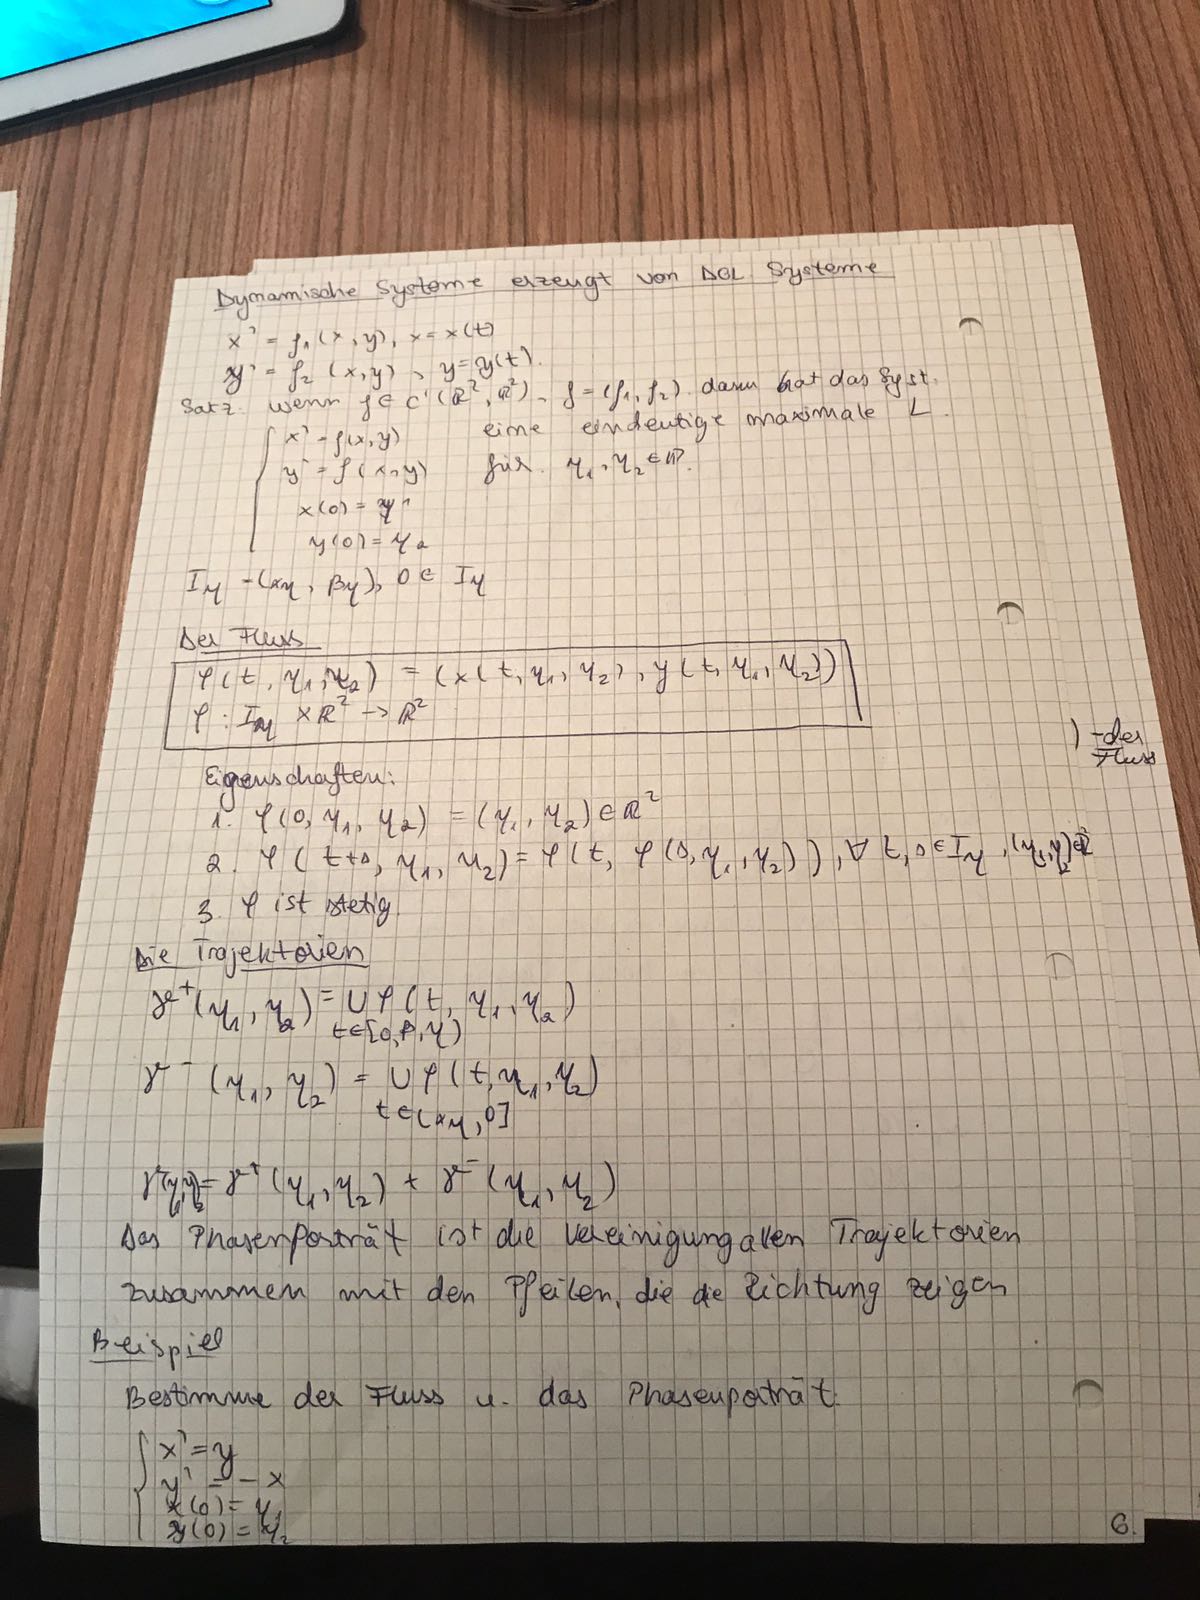 Dynamische Systeme erzeugt von DGL Systeme
x' = f₁(x, y), x = x(t)
y' = f₂(x,y), y = y(t).
Satz. Wenn f ∈ C¹(ℝ², ℝ²), f = (f₁, f₂) dann hat das Syst.
x' = f(x,y) eine eindeutige maximale L.
y' = f(x,y) für η₁, η₂ ∈ ℝ.
x(0) = η₁
y(0) = η₂
I_η = (α_η, β_η), 0 ∈ I_η
Der Fluss
φ(t, η₁, η₂) = (x(t, η₁, η₂), y(t, η₁, η₂))
φ : I_η × ℝ² → ℝ²
) - der
Fluss
Eigenschaften:
1. φ(0, η₁, η₂) = (η₁, η₂) ∈ ℝ²
2. φ(t+s, η₁, η₂) = φ(t, φ(s, η₁, η₂)), ∀ t, s ∈ I_η, (η₁, η₂) ∈ ℝ²
3. φ ist stetig.
Die Trajektorien
γ⁺(η₁, η₂) = ∪ φ(t, η₁, η₂)
t∈[0, β, η)
γ⁻(η₁, η₂) = ∪ φ(t, η₁, η₂)
t∈(α_η, 0]
γ(η₁, η₂) = γ⁺(η₁, η₂) + γ⁻(η₁, η₂)
Das Phasenporträt ist die Vereinigung allen Trajektorien
zusammen mit den Pfeilen, die die Richtung zeigen
Beispiel
Bestimme der Fluss u. das Phasenporträt.
x' = y
y' = -x
x(0) = η₁
y(0) = η₂
6.